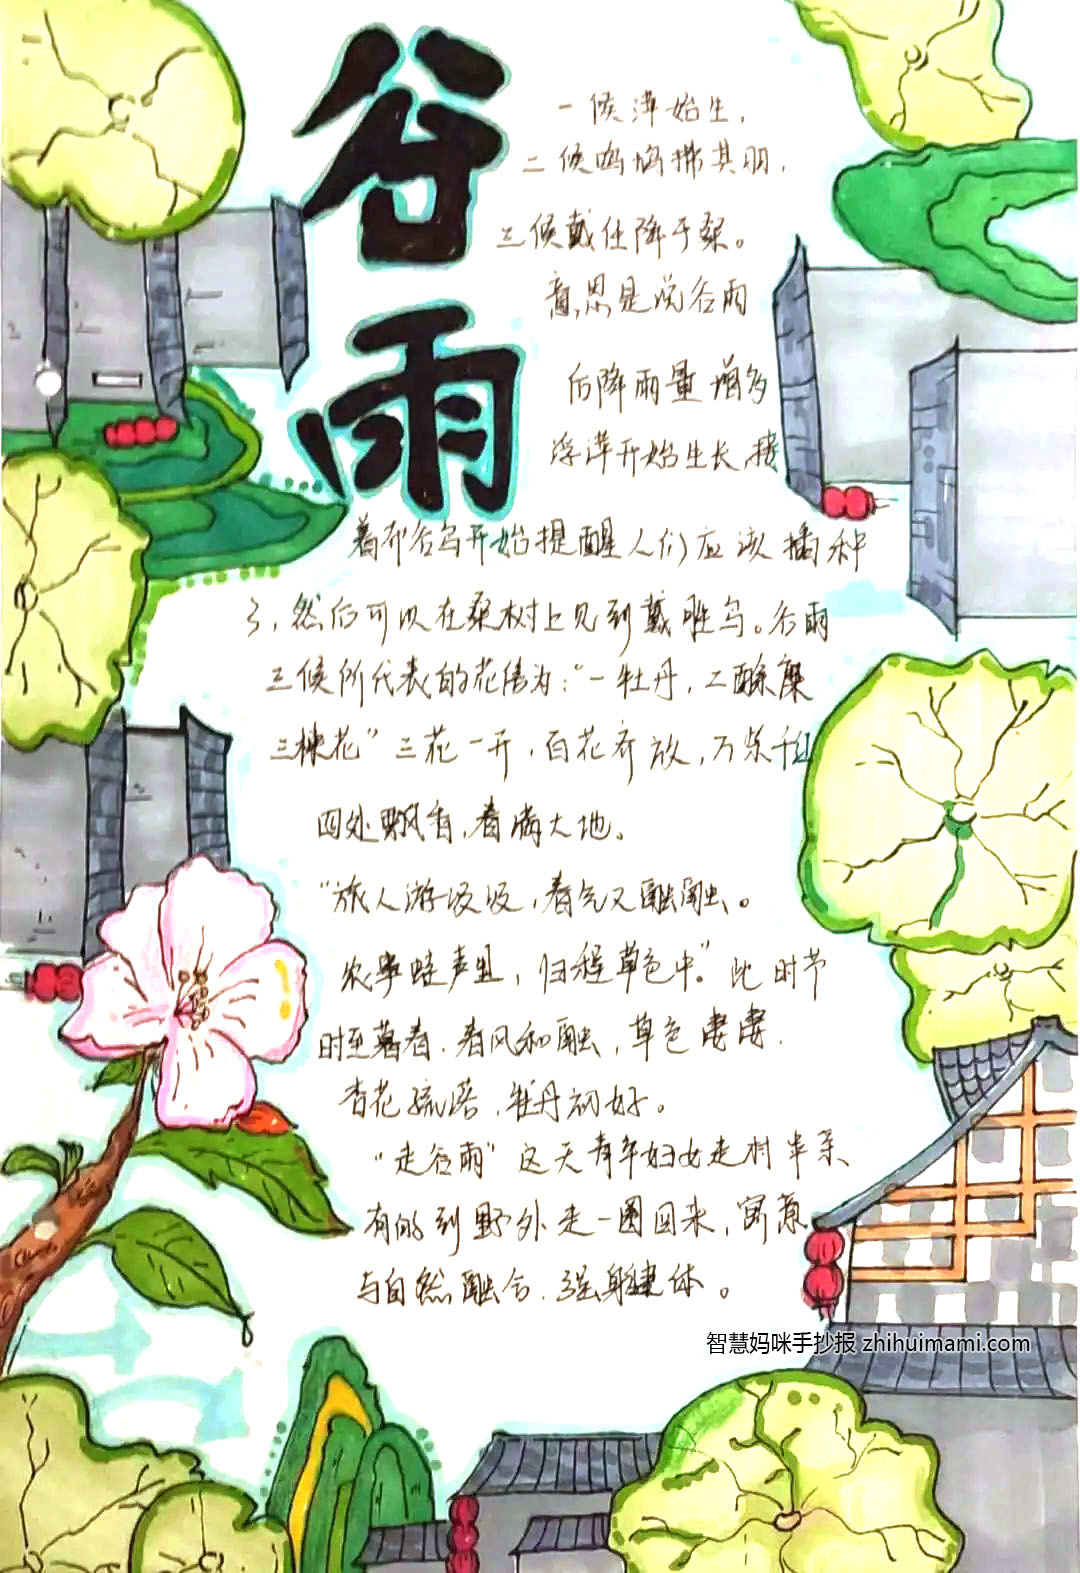 谷雨
一候萍始生，
二候鸣鸠拂其羽，
三候戴任降于桑。
意思是说谷雨
后降雨量增多
浮萍开始生长，接
着布谷鸟开始提醒人们应该播种
了，然后可以在桑树上见到戴胜鸟。谷雨
三候所代表的花信为：“一牡丹，二酴糜
三楝花”三花一开，百花齐放，万紫千红
四处飘香，春满大地。
“旅人游汲汲，春气又融融。
农事蛙声里，归程草色中。”此时节
时至暮春，春风和融，草色凄凄，
杏花疏落，牡丹初好。
“走谷雨”这天青年妇女走村串亲、
有的到野外走一圈回来，寓意
与自然融合，强身健体。
智慧妈咪手抄报 zhihuimami.com